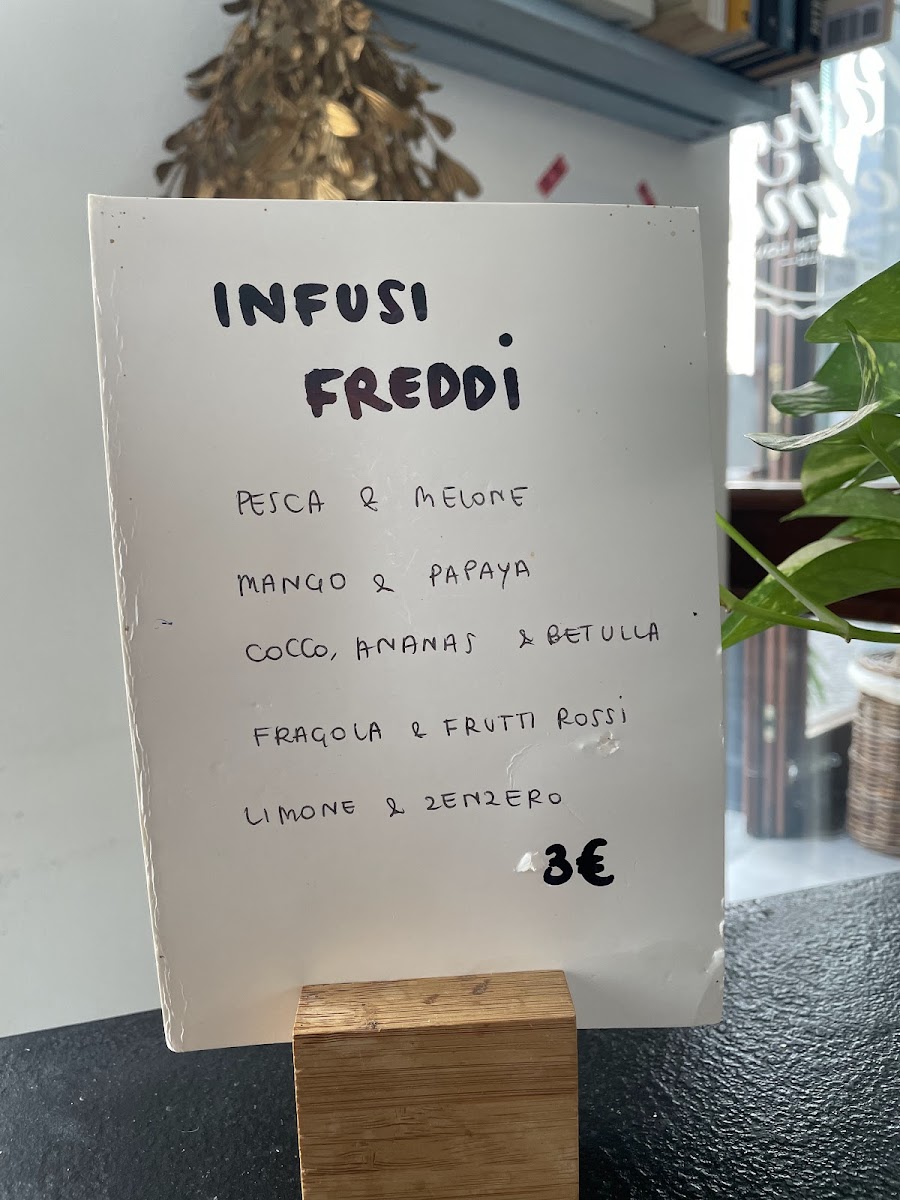 INFUSI
FREDDI
PESCA & MELONE
MANGO & PAPAYA
COCCO, ANANAS & BETULLA
FRAGOLA & FRUTTI ROSSI
LIMONE & ZENZERO
3€